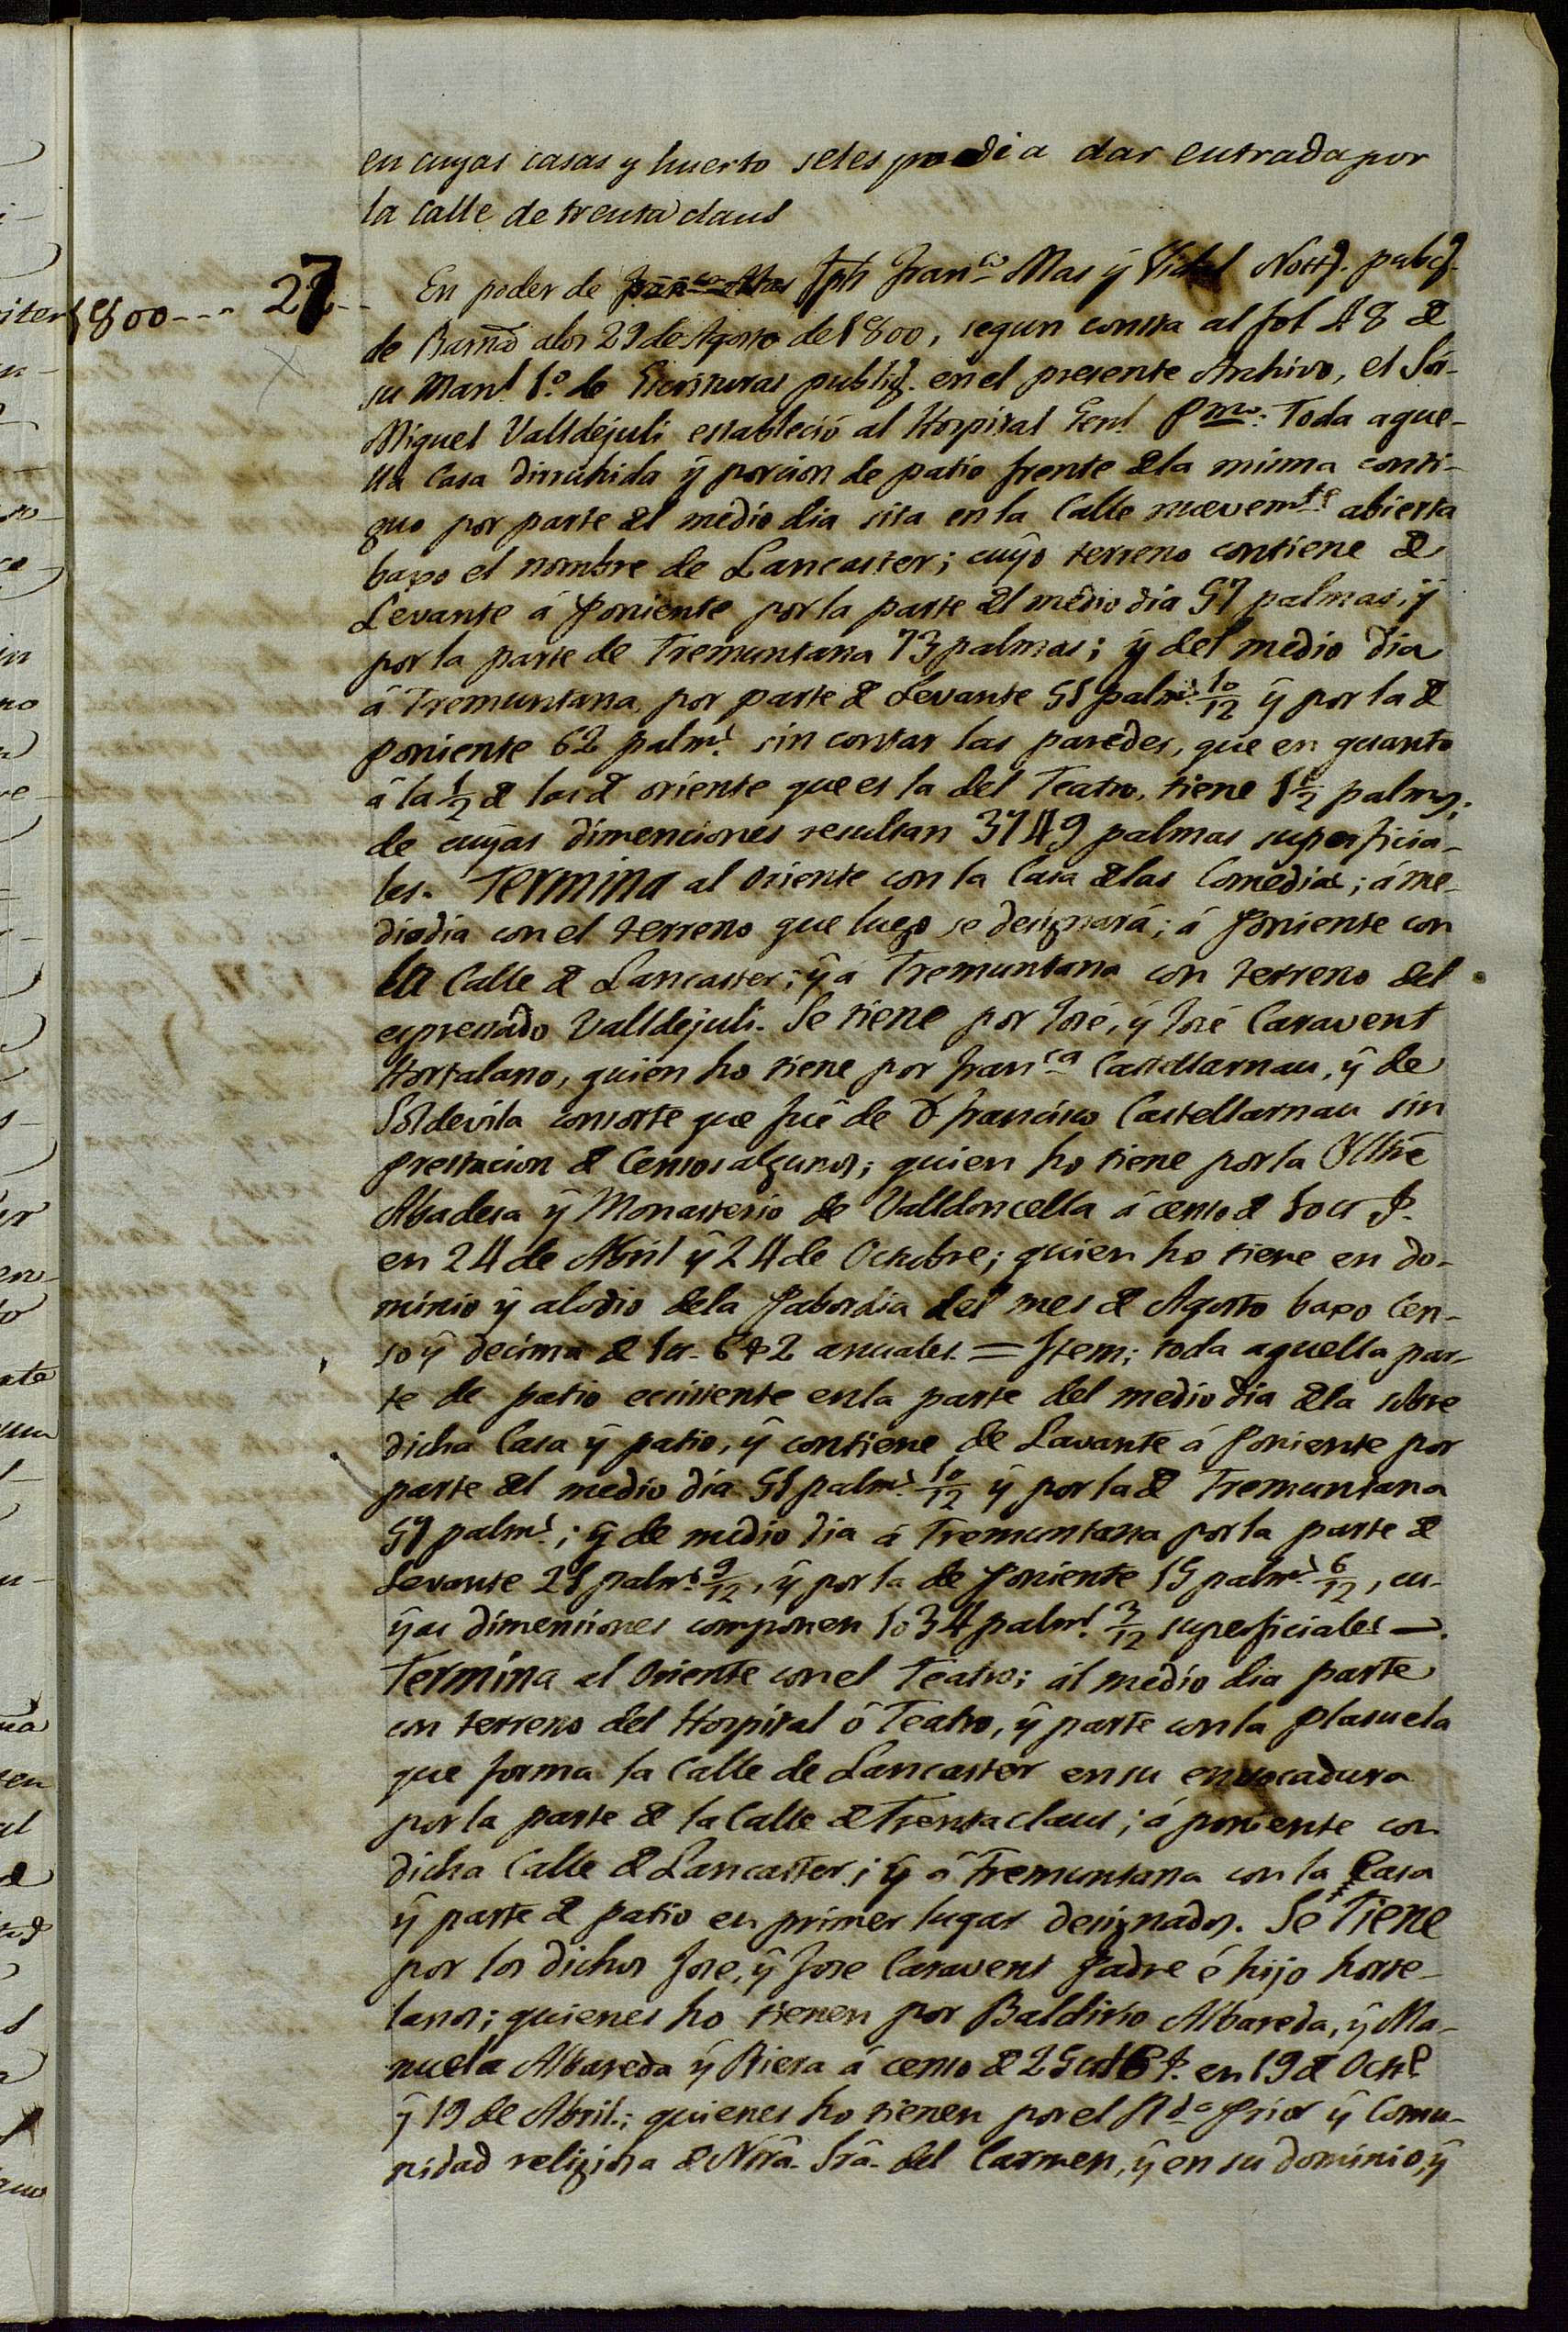 en cuyas casas y huerto seles podia dar entrada por
la calle de trenta claus
1800--- 27-- En poder de Jph Franco Mas ÿ Vidal Nott. pubc.
de Barna alos 29 de Agosto de 1800, segun consta al fol 48 de
su Manl 1o. de Escrituras publiq. en el presente Archivo, el Sor.
Miguel Valldejuli estableció al Hospital Genl. Pmo. Toda aque-
lla Casa dirruhida ÿ porcion de patio frente dela misma conti-
guo por parte del medio dia sita en la Calle nuevemte abierta
baxo el nombre de Lancaster; cuÿo terreno contiene de
Levante á Poniente por la parte del medio dia 57 palmas, ÿ
por la parte de Tremuntana 73 palmas; ÿ del medio dia
á Tremuntana, por parte de Levante 51 palms. 10/12 ÿ por la de
poniente 62 palms. sin contar las paredes, que en quanto
á la 1/2 de las de oriente que es la del Teatro, tiene 1 1/2 palmos;
de cuÿas dimenciones resultan 3749 palmas superficia-
les. Termina al Oriente con la Casa delas Comedias; á me-
diodia con el terreno que luego se designará; á Poniente con
la Calle de Lancaster; ÿ a Tremuntana con terreno del
expresado Valldejuli. Se tiene por José, ÿ José Caravent
Hortalano, quien ho tiene por Franca Castellarnau, ÿ de
Soldevila consorte que fué de Dn Francisco Castellarnau sin
prestacion de Censos algunos; quien ho tiene por la Illtre
Abadesa ÿ Monasterio de Valldoncella á censo de
en 24 de Abril ÿ 24 de Octubre; quien ho tiene en do-
minio ÿ alodio dela Pabordia del mes de Agosto baxo Cen-
so ÿ decima de anuales. = Item; toda aquella par-
te de patio eccistente en la parte del medio dia dela sobre
dicha Casa ÿ patio, ÿ contiene de Lavante á Poniente por
parte del medio dia 51 palms. 10/12 ÿ por la de Tremuntana
57 palms.; ÿ de medio dia á Tremuntana por la parte de
Levante 21 palms. 9/12, ÿ por la de Poniente 15 palms. 6/12, cu-
ÿas dimenciones componen 1034 palms. 3/12 superficiales —.
Termina al Oriente con el Teatro; al medio dia parte
con terreno del Hospital ó Teatro, ÿ parte con la plasuela
que forma la Calle de Lancaster en su envocadura
por la parte de la Calle de Trenta claus; á poniente con
dicha Calle de Lancaster; ÿ á Tremuntana con la Casa
ÿ parte de patio en primer lugar designados. Se Tiene
por los dichos Jose, ÿ Jose Caravent Padre é hijo horte-
lanos; quienes ho tienen por Baldirio Albareda, ÿ Ma-
nuela Albareda ÿ Riera á censo de en 19 de Octe
ÿ 19 de Abril.; quienes ho tienen por el Rdo Prior ÿ Comu-
nidad religiosa de Nrâ. Srâ. del Carmen, ÿ en su dominio, ÿ